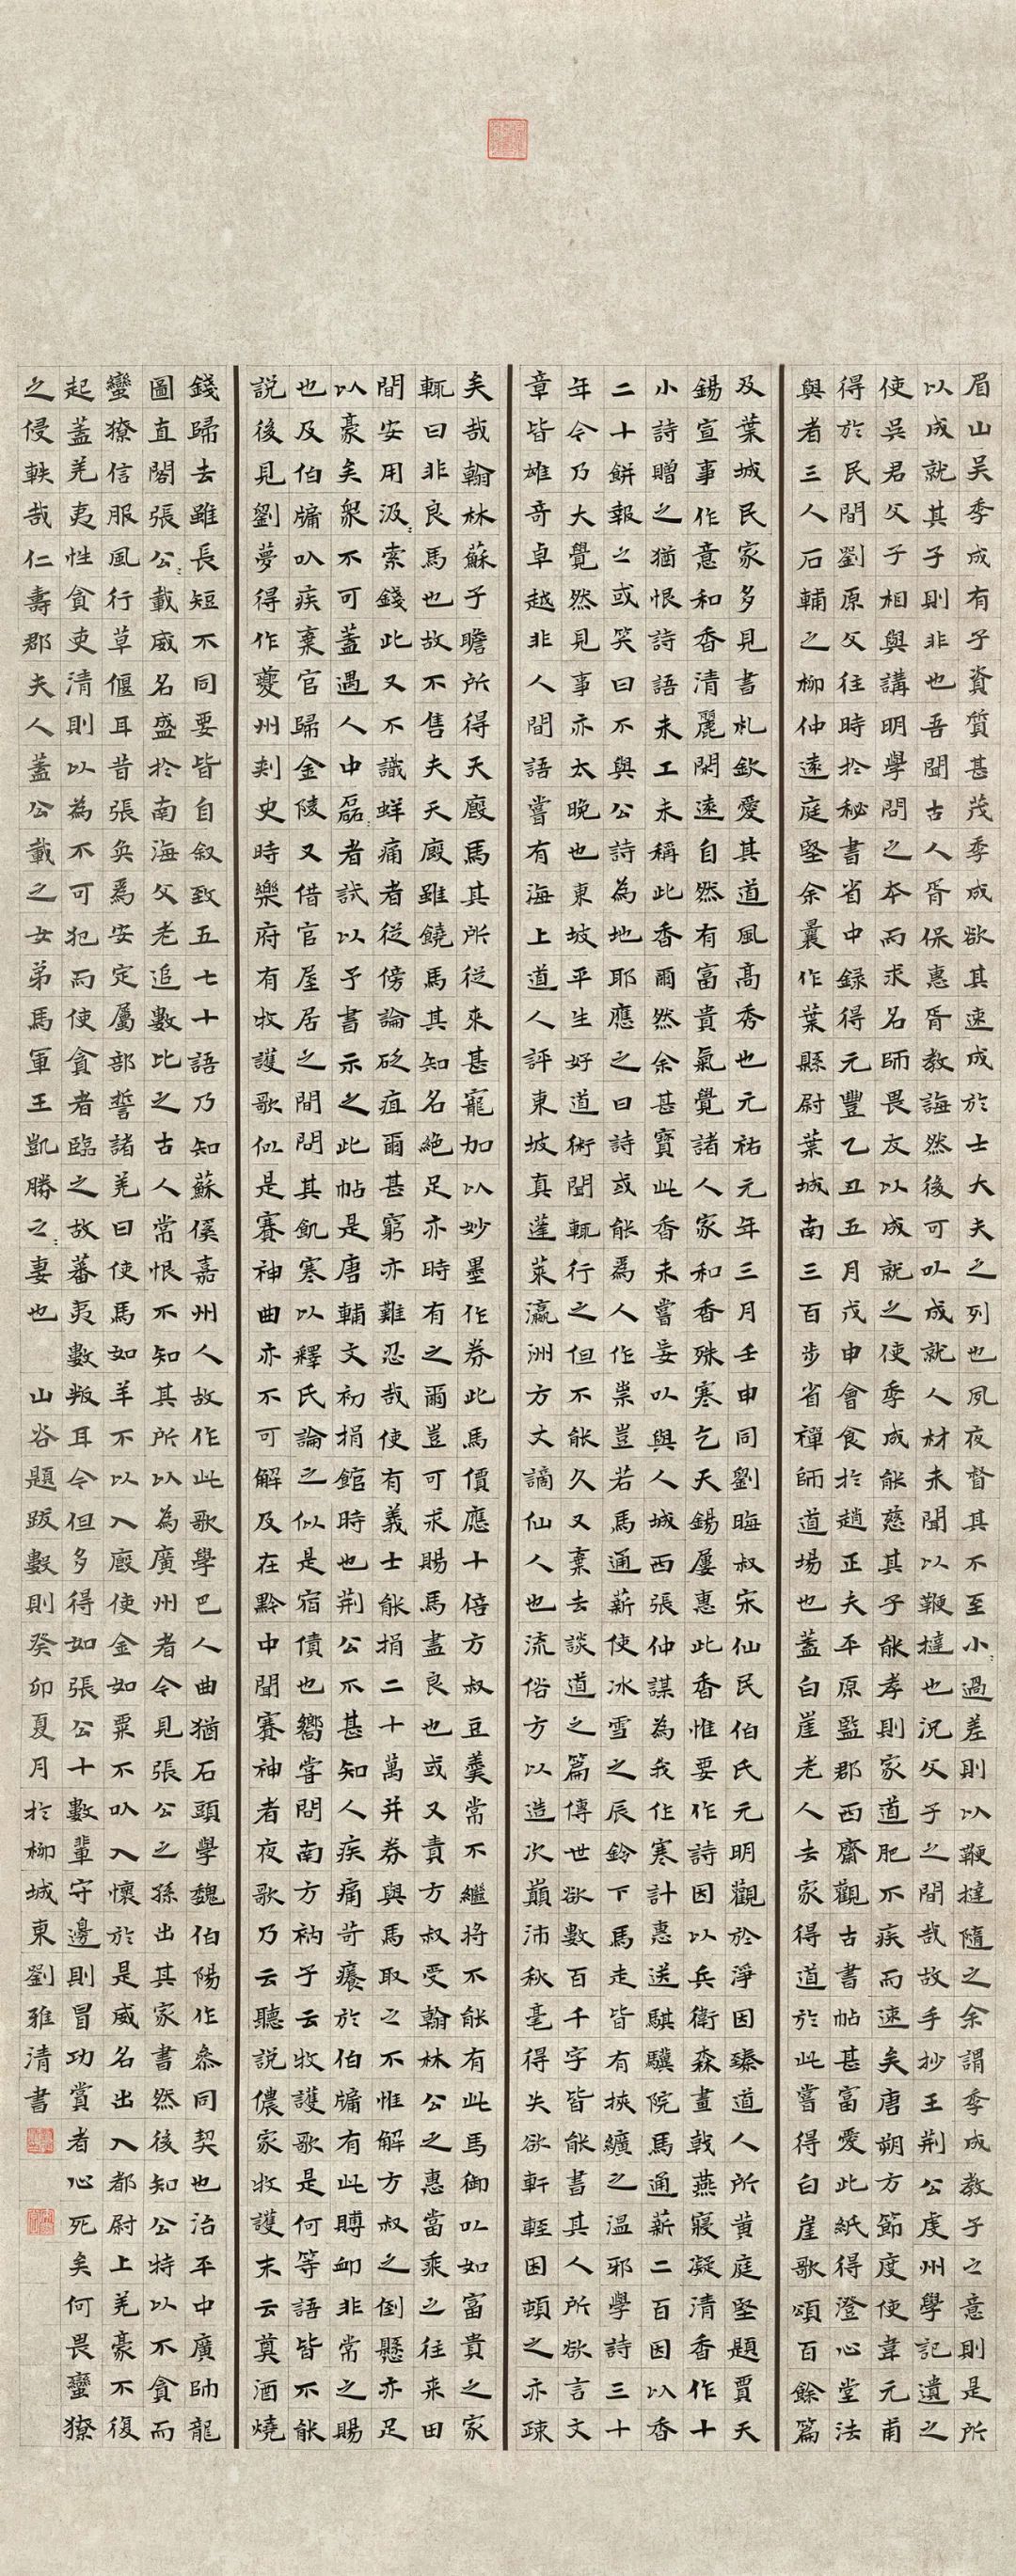 眉山吴季成有子資質甚茂季成欲其速成於士大夫之列也夙夜督其不至小過差則以鞭撻隨之余謂季成教子之意則是所
以成就其子則非也吾聞古人胥保惠胥教誨然後可以成就人材未聞以鞭撻也況父子之間哉故手抄王荆公虔州學記遺之
使吳君父子相與講明學問之本而求名師畏友以成就之使季成能慈其子能孝則家道肥不疾而速矣唐朔方節度使韋元甫
得於民間劉原父往時於秘書省中録得元豐乙丑五月戊申會食於趙正夫平原監郡西齋觀古書帖甚富愛此紙得澄心堂法
與者三人石輔之柳仲遠庭堅余曩作葉縣尉葉城南三百步省禪師道場也蓋白崖老人去家得道於此嘗得白崖歌頌百餘篇
及葉城民家多見書札欽愛其道風高秀也元祐元年三月壬申同劉晦叔宋仙民伯氏元明觀於淨因臻道人所黃庭堅題賈天
錫宣事作意和香清麗閑遠自然有富貴氣覺諸人家和香殊寒乞天錫屢惠此香惟要作詩因以兵衛森畫戟燕寢凝清香作十
小詩贈之猶恨詩語未工未稱此香爾然余甚寶此香未嘗妄以與人城西張仲謀為我作寒計惠送騏驥院馬通薪二百因以香
二十餅報之或笑曰不與公詩為地耶應之曰詩或能為人作祟豈若馬通薪使冰雪之辰鈴下馬走皆有挾纊之温邪學詩三十
年今乃大覺然見事亦太晚也東坡平生好道術聞輒行之但不能久又棄去談道之篇傳世欲數百千字皆能書其人所欲言文
章皆雄奇卓越非人間語嘗有海上道人評東坡真蓬萊瀛洲方丈謫仙人也流俗方以造次顛沛秋毫得失欲軒輊困頓之亦疎
矣哉翰林蘇子瞻所得天廄馬其所從來甚寵加以妙墨作券此馬價應十倍方叔豆羹常不繼將不能有此馬御以如富貴之家
輒曰非良馬也故不售夫天廄雖饒馬其知名絕足亦時有之爾豈可求賜馬盡良也或又責方叔受翰林公之惠當乘之往来田
間安用汲汲索錢此又不識蛘痛者從傍論砭疽爾甚窮亦難忍哉使有義士能捐二十萬并券與馬取之不惟解方叔之倒懸亦足
以豪矣衆不可蓋遇人中磊磊者試以予書示之此帖是唐輔文初捐館時也荆公不甚知人疾痛苛癢於伯牖有此賻卹非常之賜
也及伯牖以疾棄官歸金陵又借官屋居之間問其飢寒以釋氏論之似是宿債也嚮嘗問南方衲子云牧護歌是何等語皆不能
説後見劉夢得作夔州刺史時樂府有牧護歌似是賽神曲亦不可解及在黔中聞賽神者夜歌乃云聽說儂家牧護末云奠酒燒
錢歸去雖長短不同要皆自叙致五七十語乃知蘇傒嘉州人故作此歌學巴人曲猶石頭學魏伯陽作叅同契也治平中廣帥龍
圖直閣張公公載威名盛於南海父老追數比之古人常恨不知其所以為廣州者今見張公之孫出其家書然後知公特以不貪而
蠻獠信服風行草偃耳昔張奐為安定屬部誓諸羌曰使馬如羊不以入廄使金如粟不以入懷於是威名出入都尉上羌豪不復
起蓋羌夷性貪吏清則以為不可犯而使貪者臨之故蕃夷數叛耳今但多得如張公十數輩守邊則冒功賞者心死矣何畏蠻獠
之侵軼哉仁壽郡夫人蓋公載之女弟馬軍王凱勝之之妻也 山谷題跋數則癸卯夏月於柳城東劉雅清書